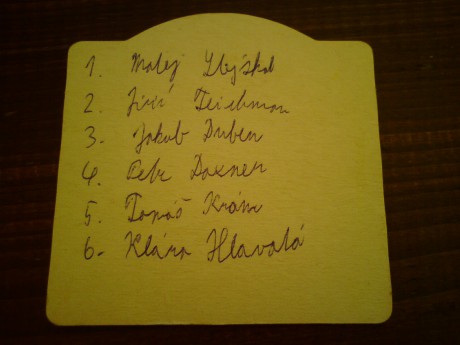 1. Matěj
2. Jiří Teichman
3. Jakub Duben
4. Petr Daxner
5. Tomáš
6. Klára Hlavatá